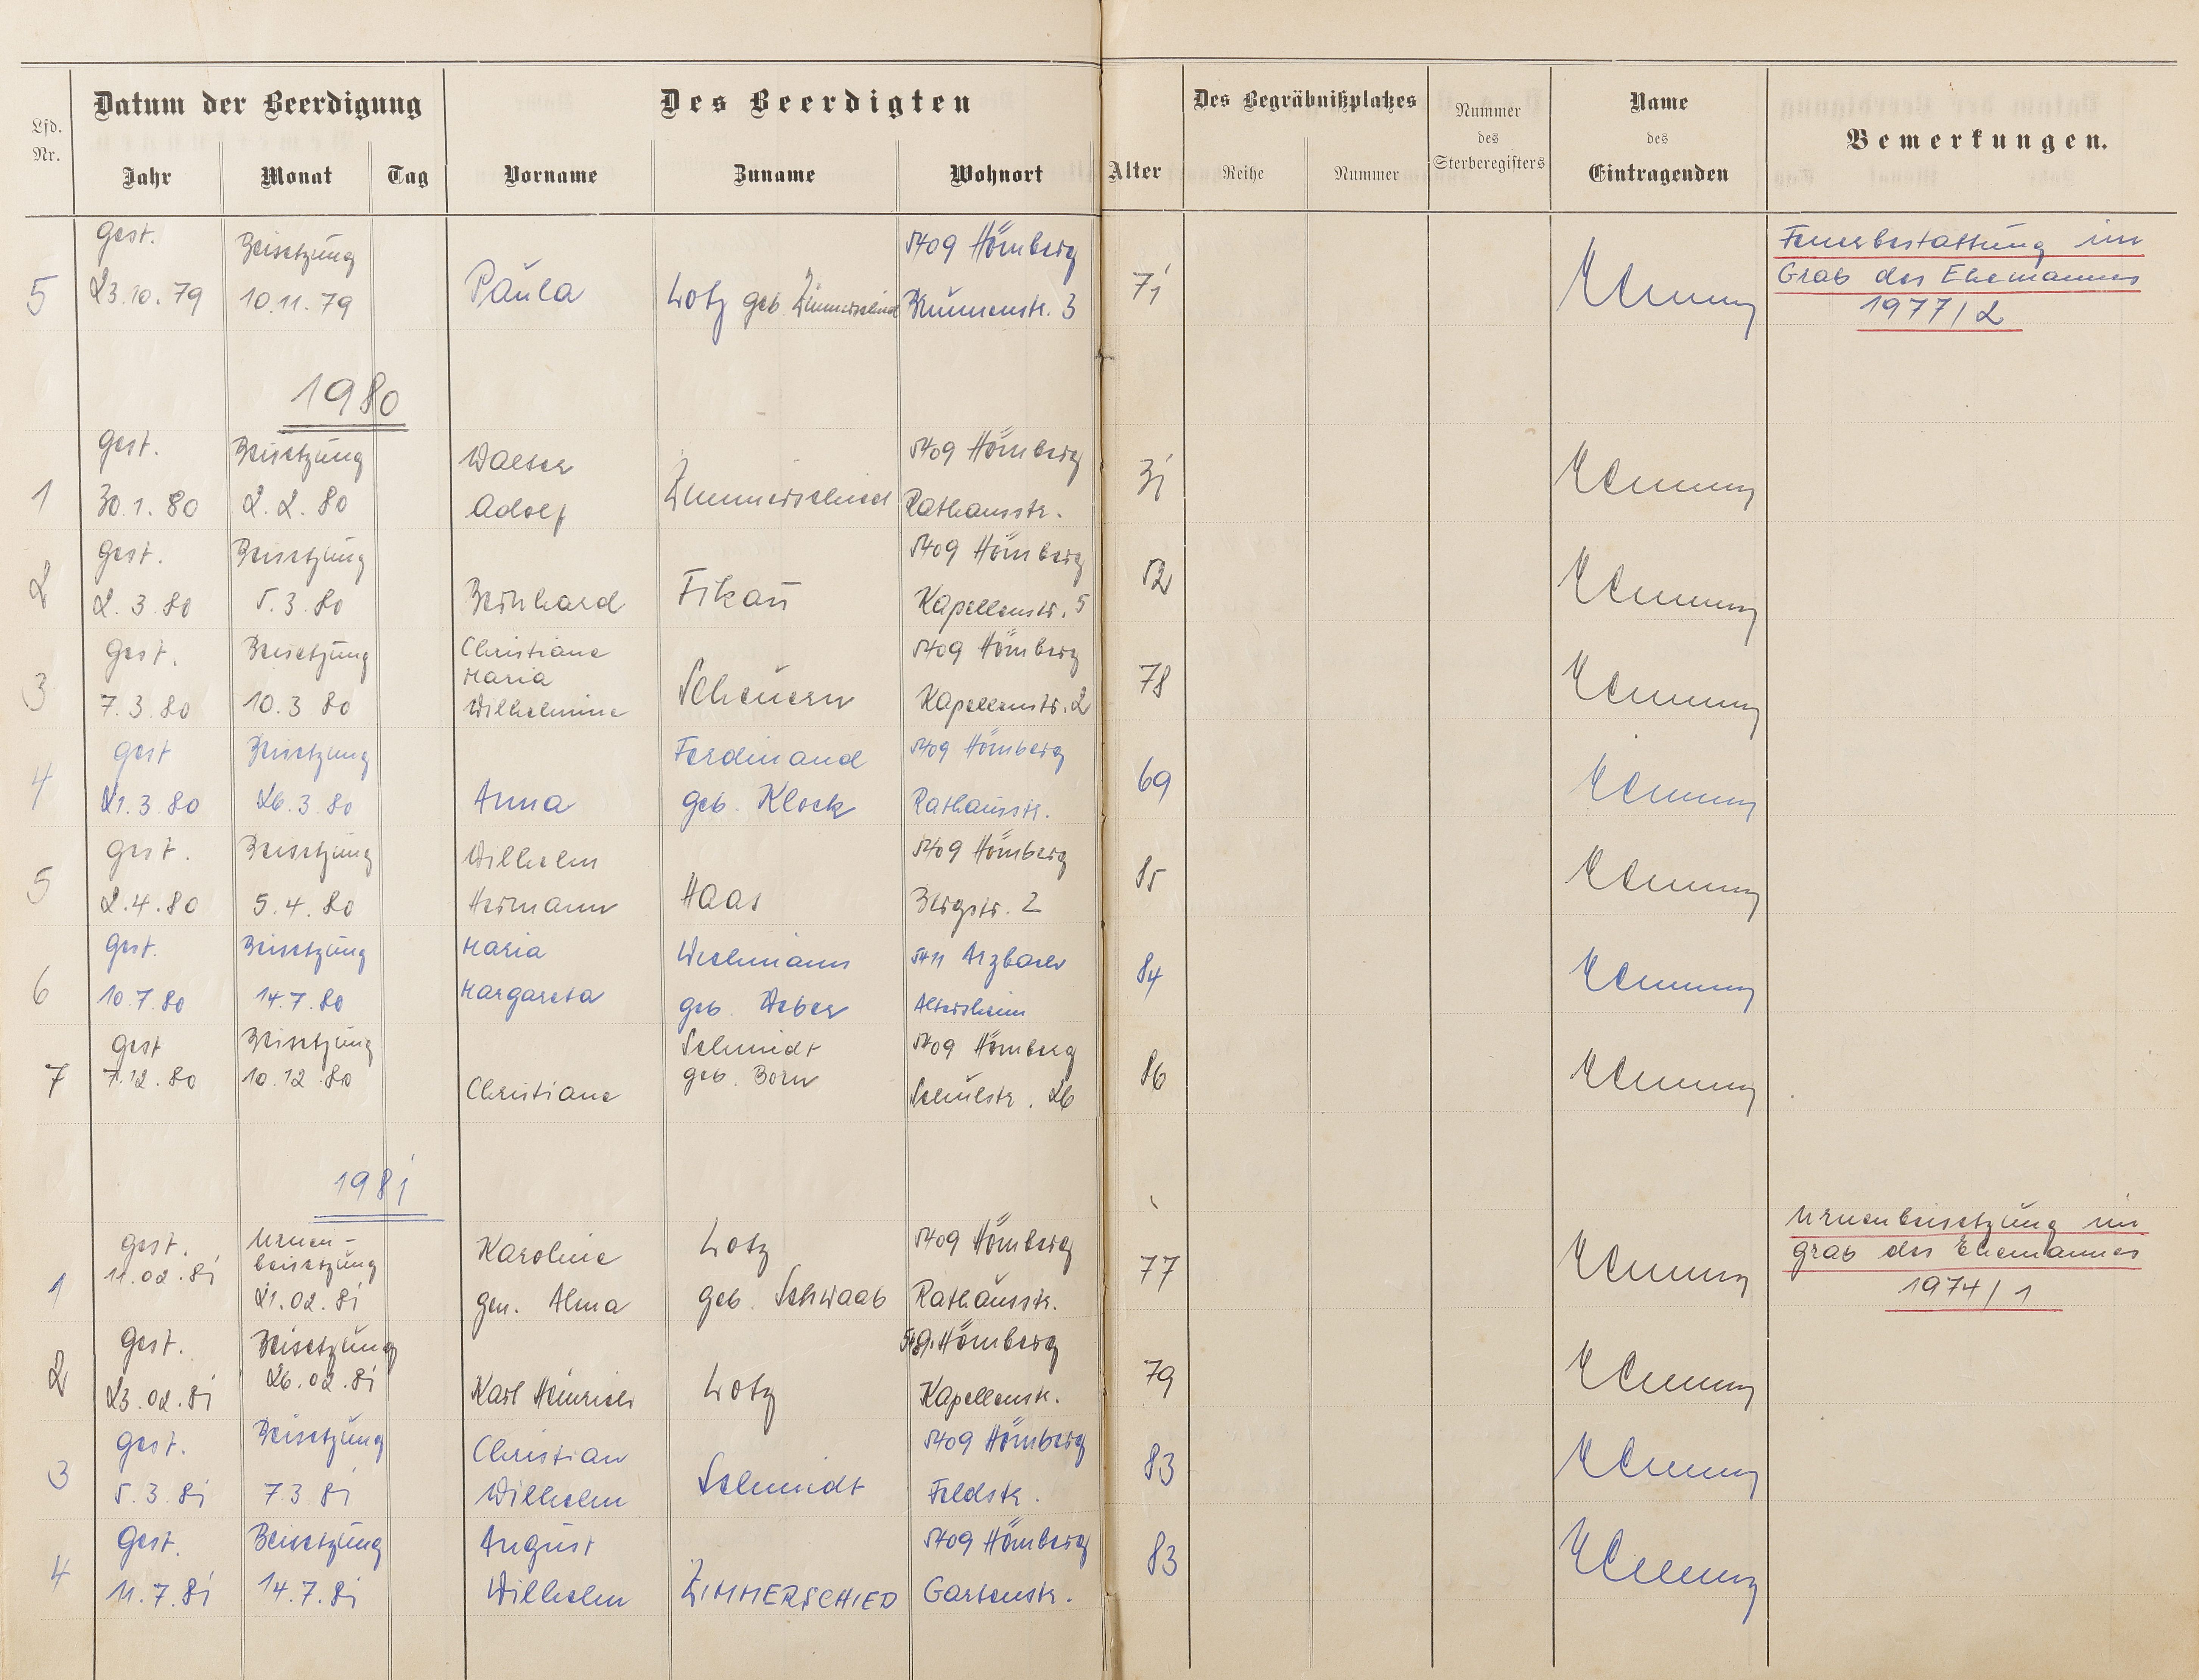 Lfd. Nr.
Datum der Beerdigung
Jahr Monat Tag
Des Beerdigten
Vorname Zuname Wohnort
Alter
Des Begräbnißplatzes
Reihe Nummer
Nummer des Sterberegisters
Name des Eintragenden
Bemerkungen.
gest. Beisetzung 5409 Hömberg Feuerbestattung im
5 23.10.79 10.11.79 Paula Lotz geb. Zimmerschied Brunnenstr. 3 71 Grab des Ehemannes
1977/2
1980
gest. Beisetzung Walter 5409 Hömberg
1 30.1.80 2.2.80 Adolf Zimmerschied Rathausstr. 31
gest. Beisetzung 5409 Hömberg
2 2.3.80 5.3.80 Bernhard Fikau Kapellenstr. 5 52
gest. Beisetzung Christiane 5409 Hömberg
Maria
3 7.3.80 10.3.80 Wilhelmine Scheuern Kapellenstr. 2 78
gest Beisetzung Ferdinand 5409 Hömberg
4 21.3.80 26.3.80 Anna geb. Klock Rathausstr. 69
gest. Beisetzung Wilhelm 5409 Hömberg
5 2.4.80 5.4.80 Hermann Haas Bergstr. 2 85
gest. Beisetzung Maria Wichmann 5411 Arzbach
6 10.7.80 14.7.80 Margareta geb. Weber Altersheim 84
gest Beisetzung Schmidt 5409 Hömberg
7 7.12.80 10.12.80 Christiane geb. Born Schulstr. 26 86
1981
gest. Urnen- Karoline Lotz 5409 Hömberg Urnenbeisetzung im
11.02.81 beisetzung 77 Grab des Ehemannes
1 21.02.81 gen. Alma geb. Schwaab Rathausstr. 1974/1
gest. Beisetzung 5409 Hömberg
2 23.02.81 26.02.81 Karl Heinrich Lotz Kapellenstr. 79
gest. Beisetzung Christian 5409 Hömberg
3 5.3.81 7.3.81 Wilhelm Schmidt Feldstr. 83
gest. Beisetzung August 5409 Hömberg
4 11.7.81 14.7.81 Wilhelm ZIMMERSCHIED Gartenstr. 83